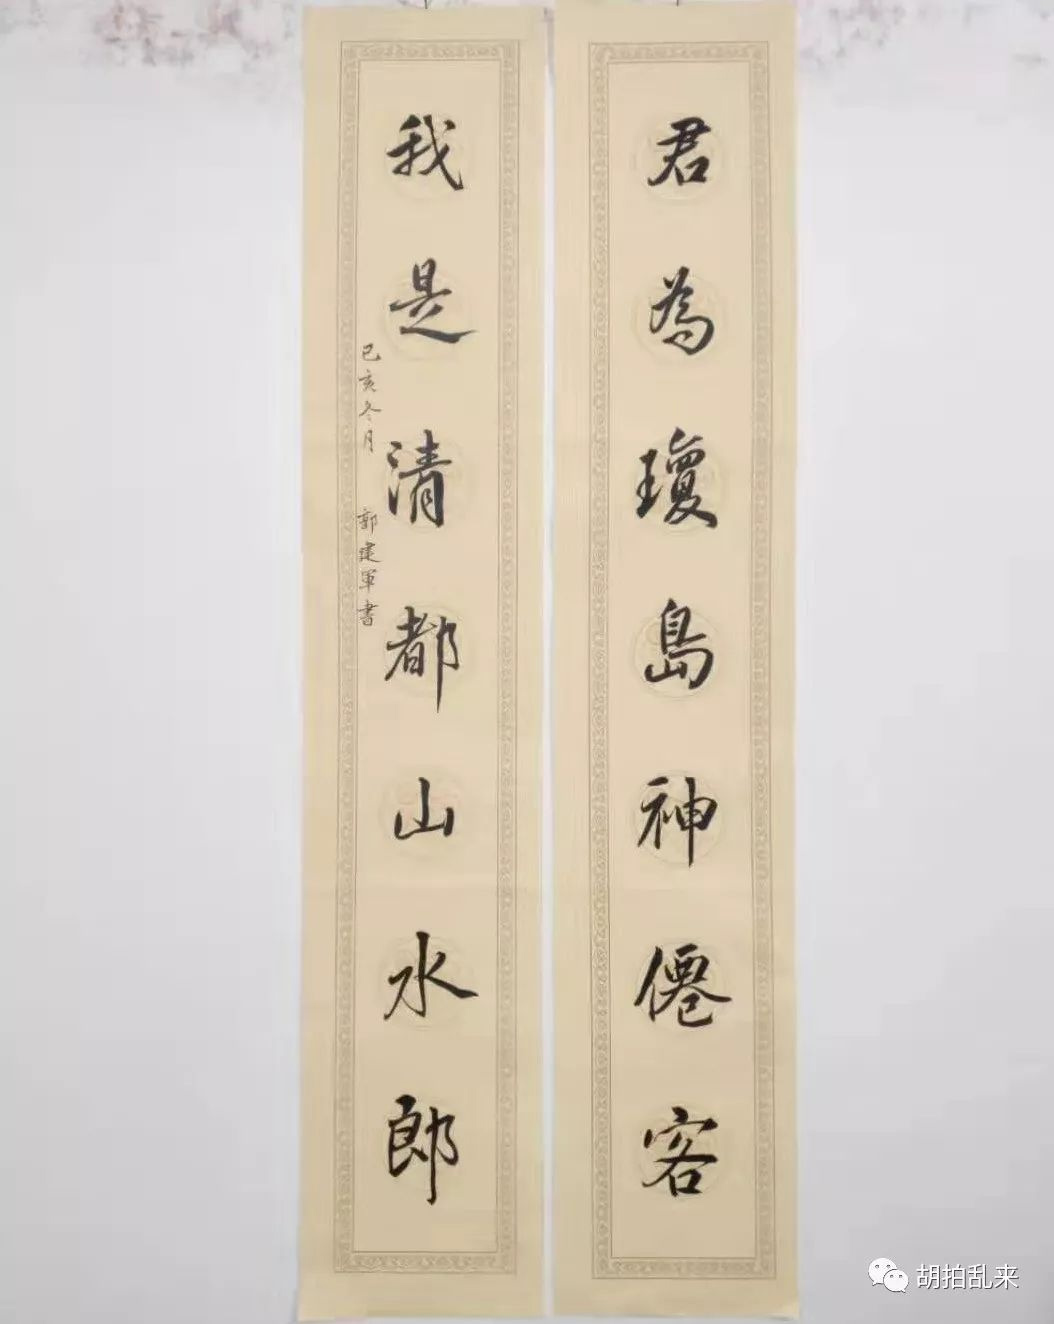 君為瓊島神僊客
我是清都山水郎
己亥冬月 郭建軍書
胡拍乱来